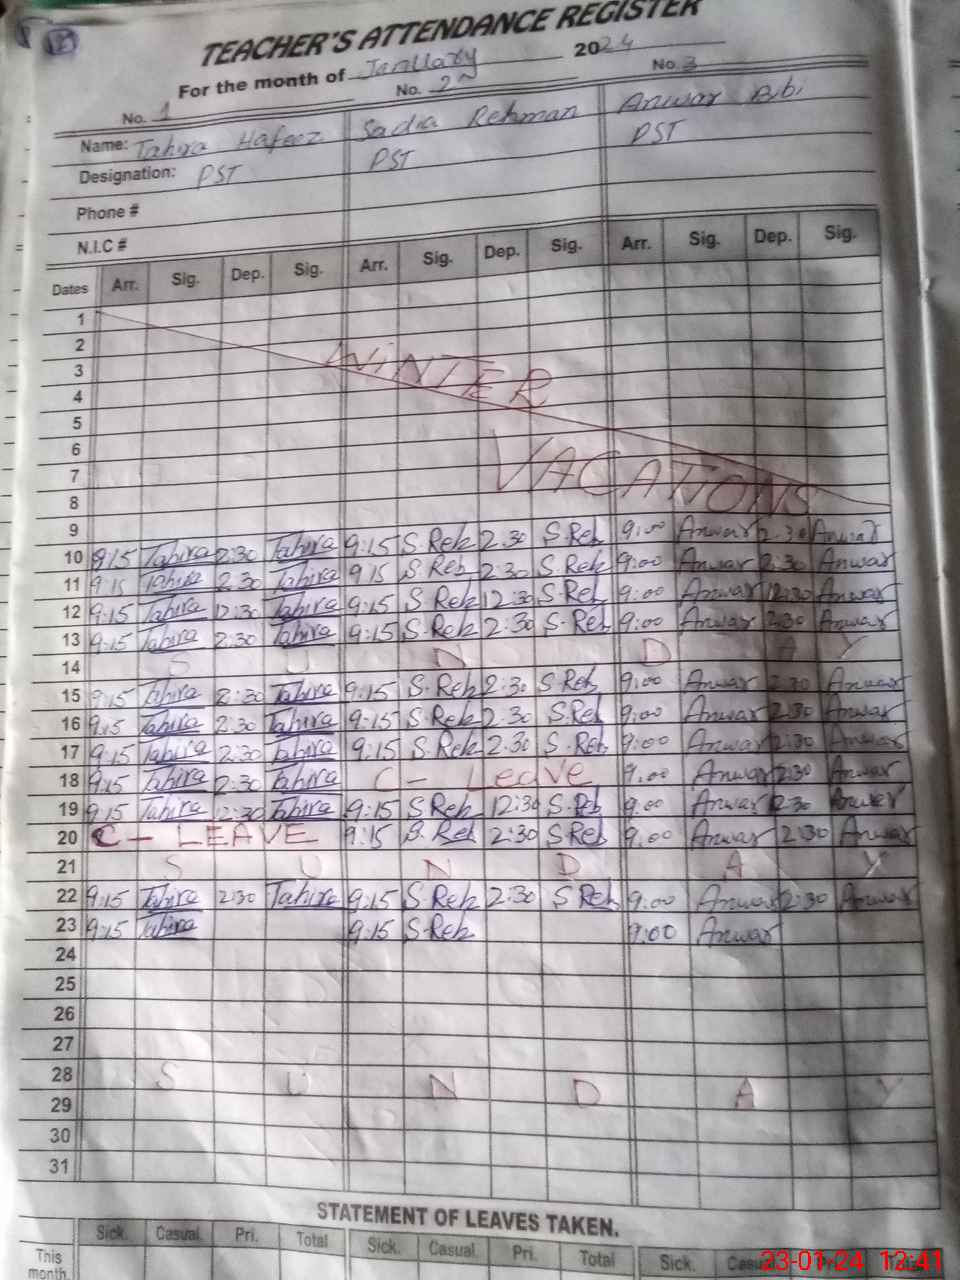 TEACHER'S ATTENDANCE REGISTER
For the month of Janllary 2024
No. 1 No. 2 No. 3
Name: Tahira Hafeez Sadia Rehman Anwar Bibi
Designation: PST PST PST
Phone #
N.I.C #
Dates Arr. Sig. Dep. Sig. Arr. Sig. Dep. Sig. Arr. Sig. Dep. Sig.
1
2
3 WINTER
4
5
6
7 VACATIONS
8
9
10 9:15 Tahira 2:30 Tahira 9:15 S.Reh 2:30 S.Reh 9:00 Anwar 2:30 Anwar
11 9:15 Tahira 2:30 Tahira 9:15 S.Reh 2:30 S.Reh 9:00 Anwar 2:30 Anwar
12 9:15 Tahira 12:30 Tahira 9:15 S.Reh 12:30 S.Reh 9:00 Anwar 12:30 Anwar
13 9:15 Tahira 2:30 Tahira 9:15 S.Reh 2:30 S.Reh 9:00 Anwar 2:30 Anwar
14 S U N D A Y
15 9:15 Tahira 2:30 Tahira 9:15 S.Reh 2:30 S.Reh 9:00 Anwar 2:30 Anwar
16 9:15 Tahira 2:30 Tahira 9:15 S.Reh 2:30 S.Reh 9:00 Anwar 2:30 Anwar
17 9:15 Tahira 2:30 Tahira 9:15 S.Reh 2:30 S.Reh 9:00 Anwar 2:30 Anwar
18 9:15 Tahira 2:30 Tahira C - Leave 9:00 Anwar 2:30 Anwar
19 9:15 Tahira 12:30 Tahira 9:15 S.Reh 12:30 S.Reh 9:00 Anwar 12:30 Anwar
20 C - LEAVE 9:15 S.Reh 2:30 S.Reh 9:00 Anwar 2:30 Anwar
21 S U N D A Y
22 9:15 Tahira 2:30 Tahira 9:15 S.Reh 2:30 S.Reh 9:00 Anwar 2:30 Anwar
23 9:15 Tahira 9:15 S.Reh 9:00 Anwar
24
25
26
27
28 S U N D A Y
29
30
31
STATEMENT OF LEAVES TAKEN.
Sick. Casual. Pri. Total Sick. Casual. Pri. Total Sick. Casual Pri. Total
This month
23-01-24 12:41